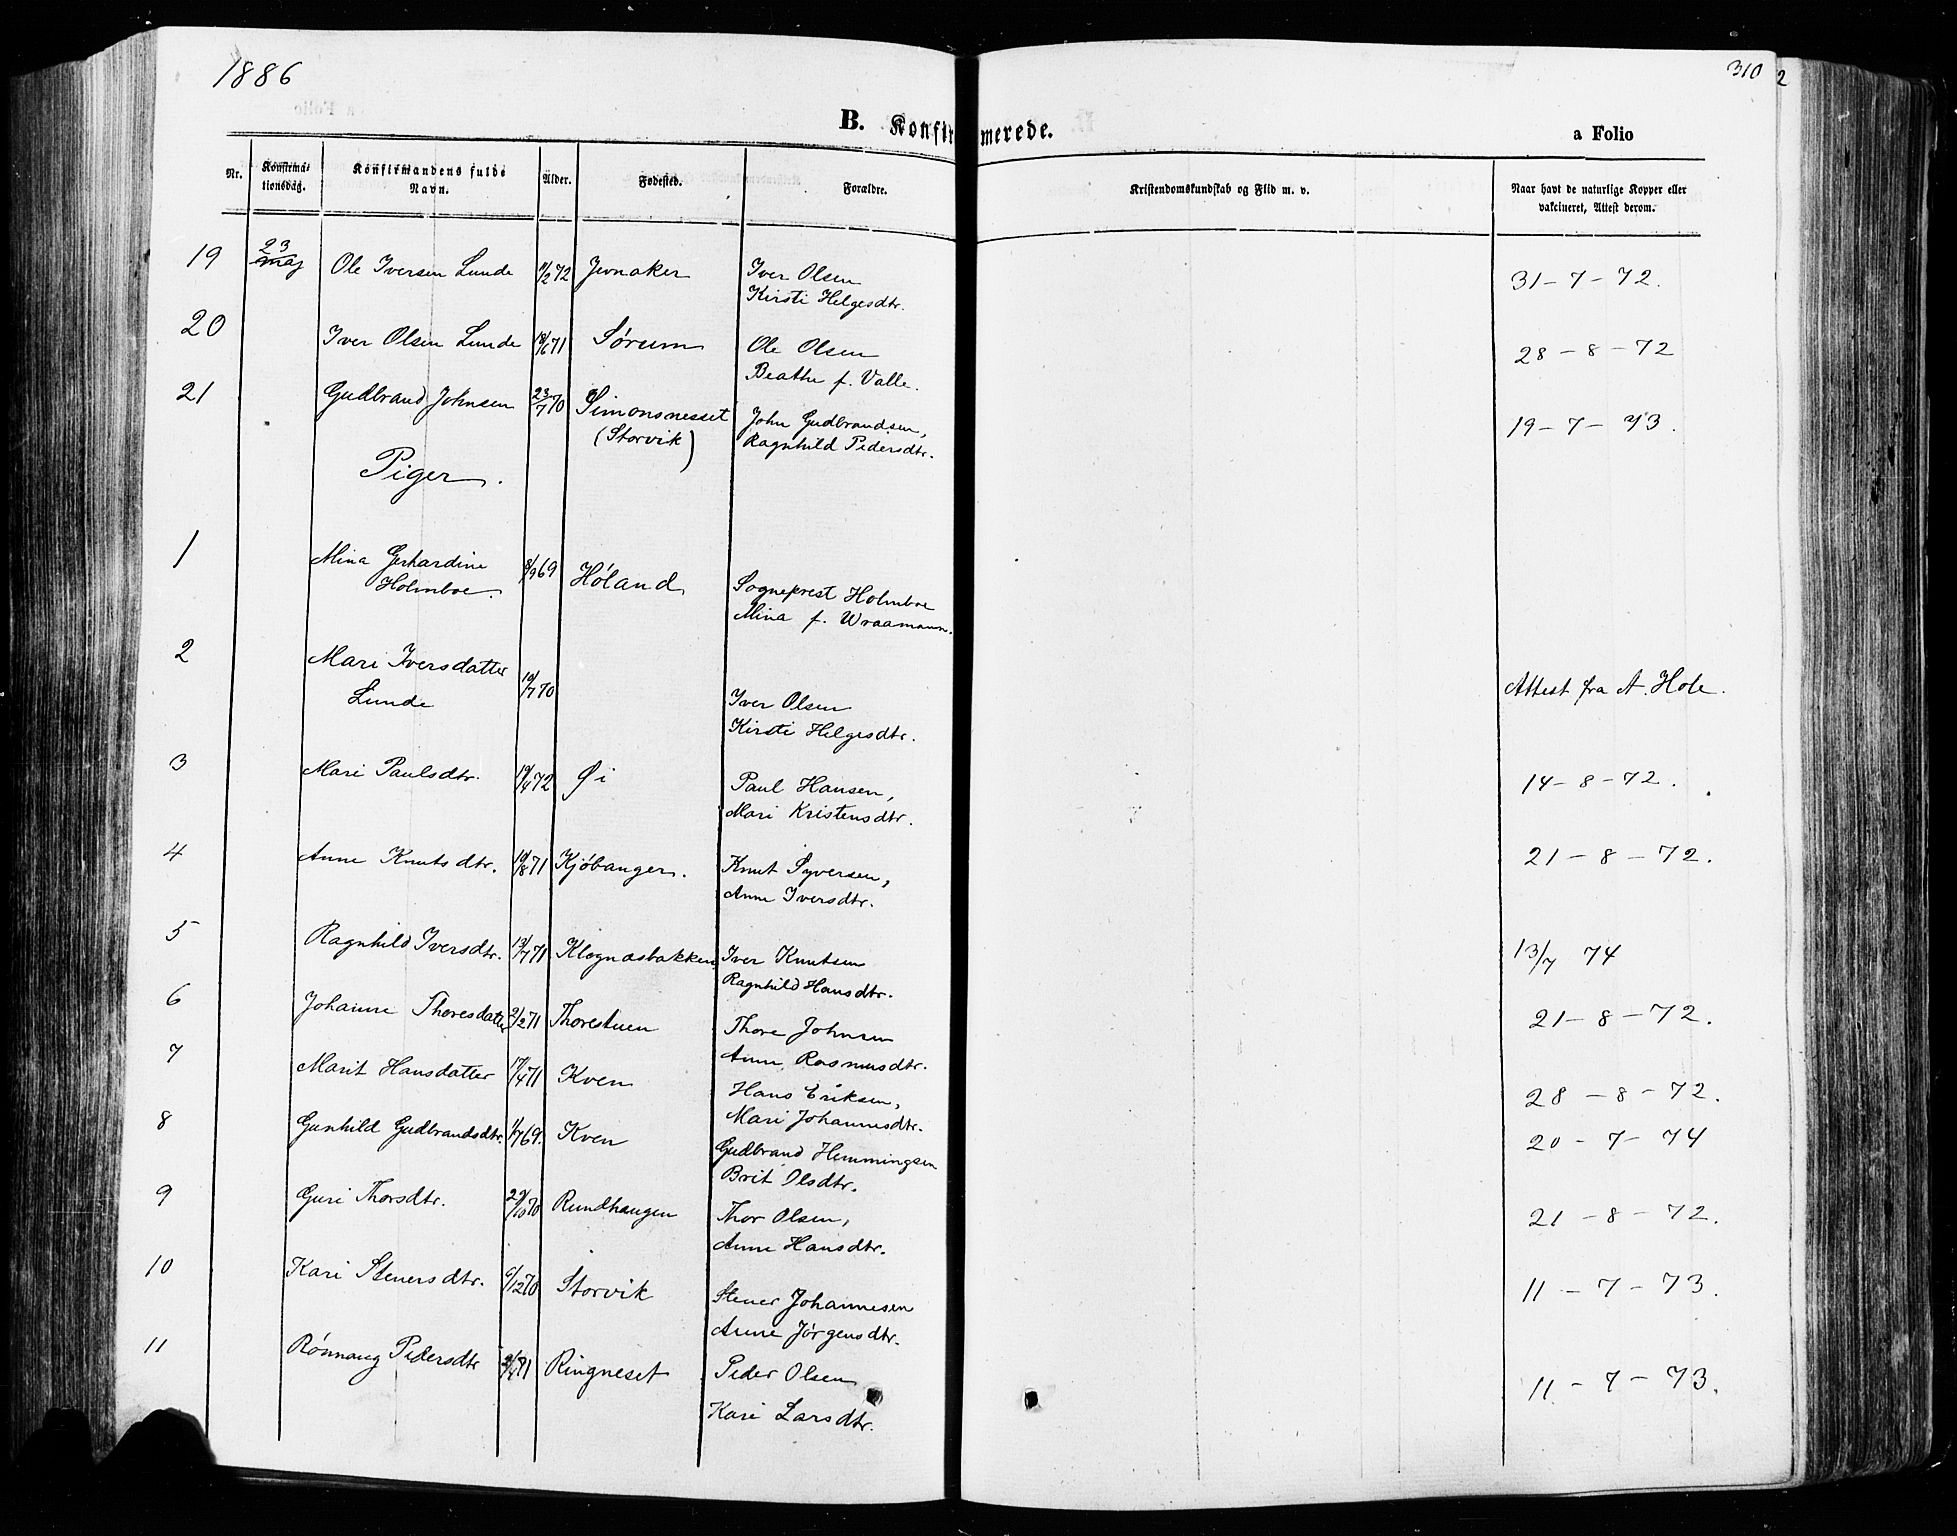 1886
310
2
B. Konfirmerede.
a Folio
Nr.
Konfirma-
tionsdag.
Konfirmandens fulde
Navn.
Alder.
Fødested.
Forældre.
Kristendomskundskab og Flid m. v.
Naar havt de naturlige Kopper eller
vakcineret, Attest derom.
19 23 maj Ole Iversen Lunde 11/2 72 Jevnaker Iver Olsen 31-7-72.
Kirsti Helgesdtr.
20 Iver Olsen Lunde 18/6 71 Sørum Ole Olsen 28-8-72
Beathe f. Valle.
21 Gudbrand Johnsen 23/7 70 Simonsnesset John Gudbrandsen, 19-7-73.
(Storvik) Ragnhild Pedersdtr.
Piger.
1 Mina Gerhardine 8/9 69 Høland Sogneprest Holmboe
Holmboe. Mina f. Wraamann.
2 Mari Iversdatter 10/7 70 Iver Olsen Attest fra A. Hole.
Lunde Kirsti Helgesdtr.
3 Mari Paulsdtr. 19/4 72 Øi Paul Hansen, 14-8-72.
Mari Kristensdtr.
4 Anne Knutsdtr. 10/8 71 Kjøbangen. Knut Syversen, 21-8-72.
Anne Iversdtr.
5 Ragnhild Iversdtr. 13/7 71 Klognæsbakken Iver Knutsen 13/7 74
Ragnhild Hansdtr.
6 Johanne Thoresdatter 2/2 71 Thorestuen Thore Johnsen 21-8-72.
Anne Rasmusdtr.
7 Marit Hansdatter 17/4 71 Kven Hans Eriksen, 28-8-72.
Mari Johannesdtr.
8 Gunhild Gudbrandsdtr. 1/7 69. Kven Gudbrand Hemmingsen 20-7-74
Brit Olsdtr.
9 Guri Thorsdtr. 29/10 70 Rundhaugen Thor Olsen, 21-8-72.
Anne Hansdtr.
10 Kari Stenersdtr. 6/12 70 Storvik Stener Johannesen 11-7-73.
Anne Jørgensdtr.
11 Rønnaug Pedersdtr 71 Ringneset Peder Olsen 11-7-73.
Kari Larsdtr.